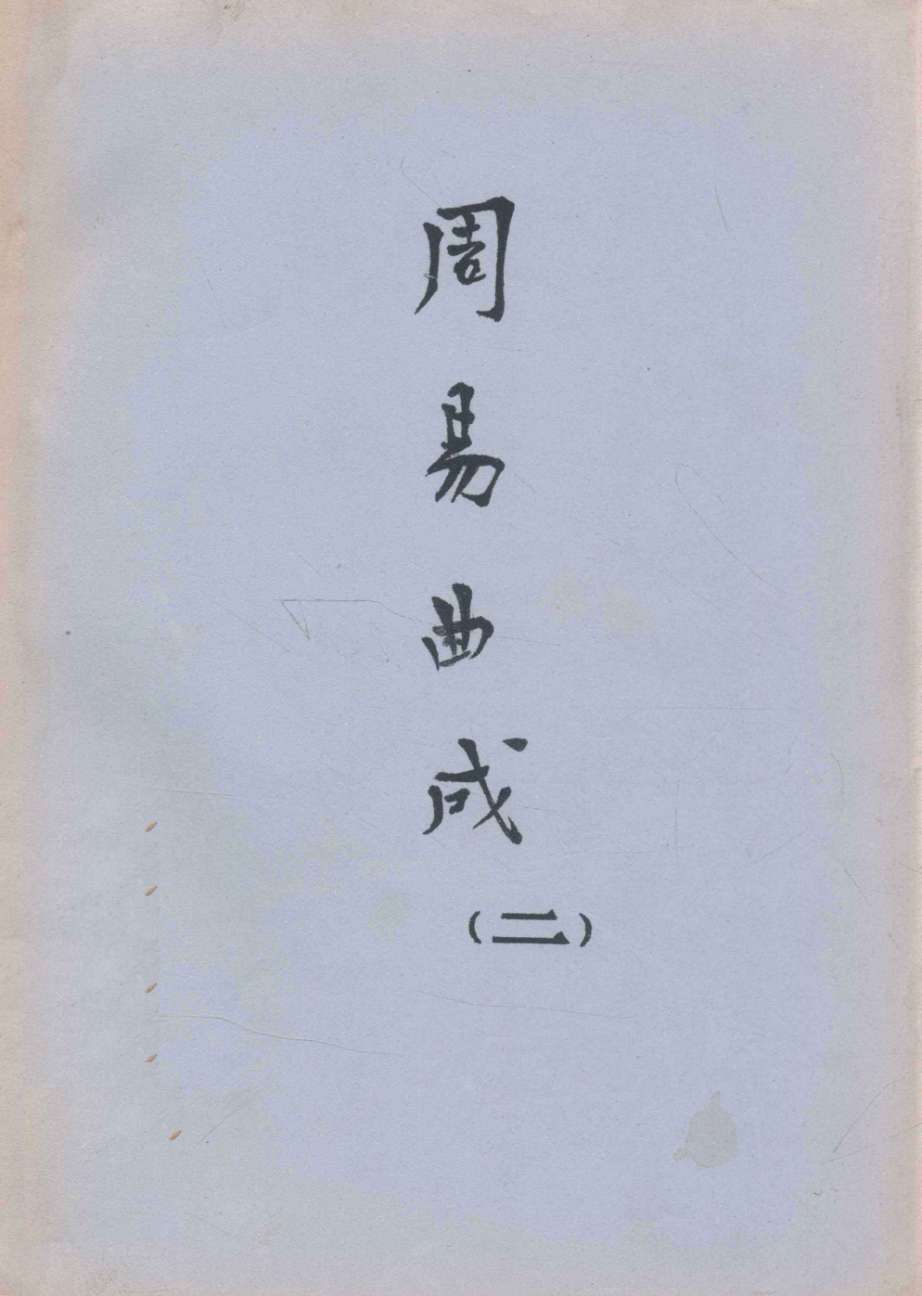 周易曲成
(二)